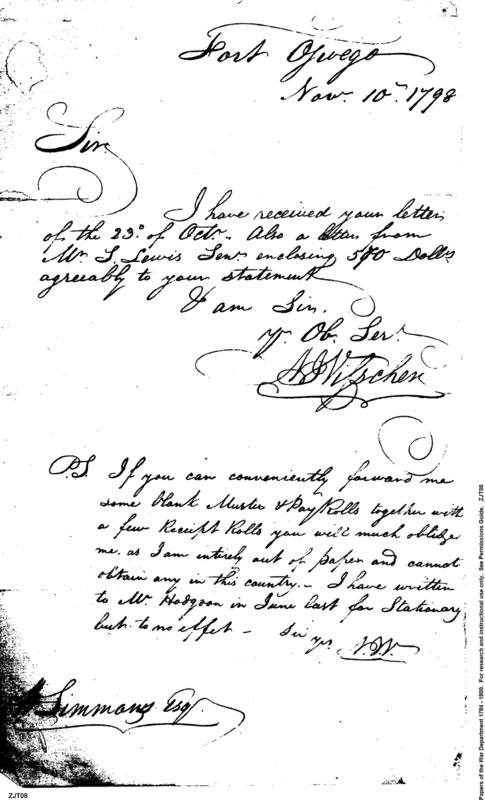 Fort Oswego
Nov. 10th. 1798
Sir,
I have received your letter
of the 23d. of Octr. Also a letter from
Mr. S. Lewis Senr. enclosing 570 Dolls
agreeably to your statement
I am Sir.
yr. Ob. Serv.
P.S. If you can conveniently forward me
some blank Muster & Pay Rolls together with
a few Receipt Rolls you will much oblidge
me, as I am intirely out of paper and cannot
obtain any in this country. – I have written
to Mr. Hodgdon in June last for Stationary
but to no effet – Sir yrs N.W.
Simmons Esqr.
ZJT08
Papers of the War Department 1784 - 1800. For research and instructional use only. See Permissions Guide. ZJT08